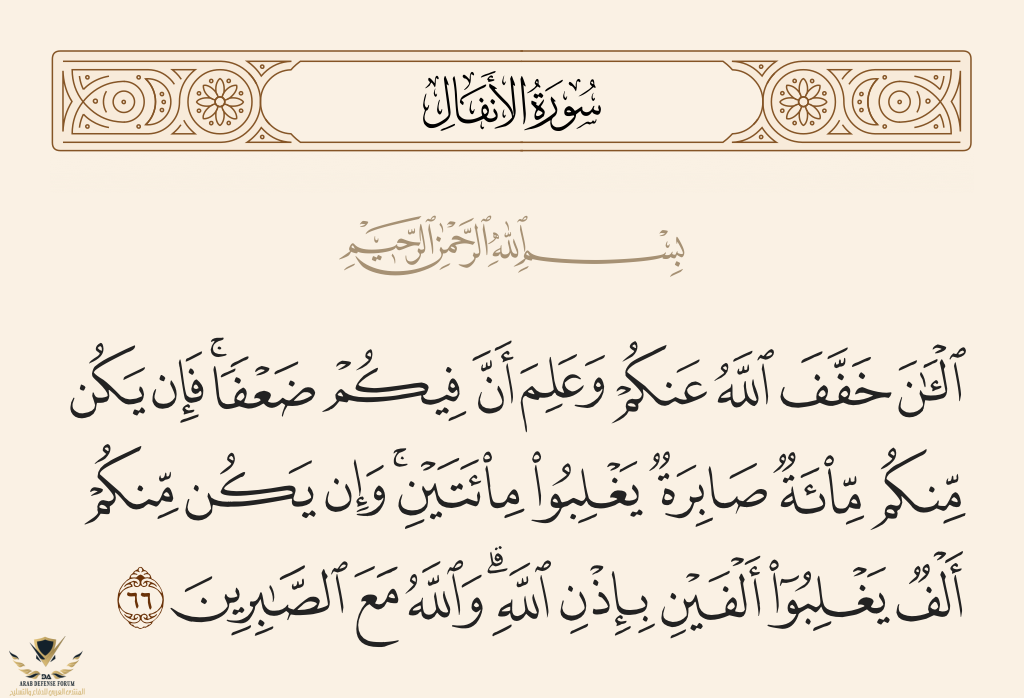 سُورَةُ الأَنفَالِ
بِسْمِ ٱللَّهِ ٱلرَّحْمَٰنِ ٱلرَّحِيمِ
ٱلْـَٰٔنَ خَفَّفَ ٱللَّهُ عَنكُمْ وَعَلِمَ أَنَّ فِيكُمْ ضَعْفًا ۚ فَإِن يَكُن
مِّنكُم مِّا۟ئَةٌ صَابِرَةٌ يَغْلِبُوا۟ مِا۟ئَتَيْنِ ۚ وَإِن يَكُن مِّنكُمْ
أَلْفٌ يَغْلِبُوٓا۟ أَلْفَيْنِ بِإِذْنِ ٱللَّهِ ۗ وَٱللَّهُ مَعَ ٱلصَّٰبِرِينَ ٦٦
DA
ARAB DEFENSE FORUM
المنتدى العربي للدفاع والتسليح